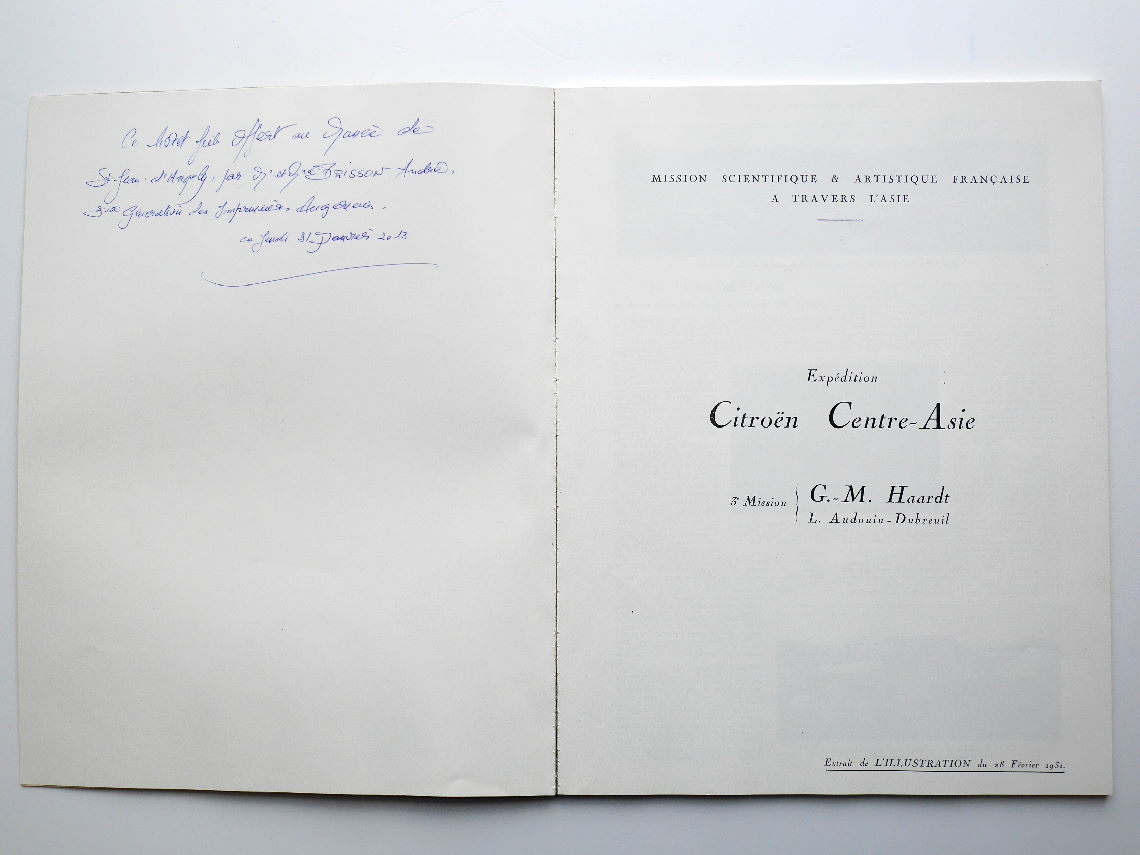 Ce livret fut offert au Musée de
St Jean-d'Angely, par Mr et Mme BRISSON André,
3ème Génération des Imprimeries
ce Jeudi 31 Janvier 2013
MISSION SCIENTIFIQUE & ARTISTIQUE FRANÇAISE
A TRAVERS L'ASIE
Expédition
Citroën Centre-Asie
3e Mission
G.-M. Haardt
L. Audouin-Dubreuil
Extrait de L'ILLUSTRATION du 28 Février 1931.